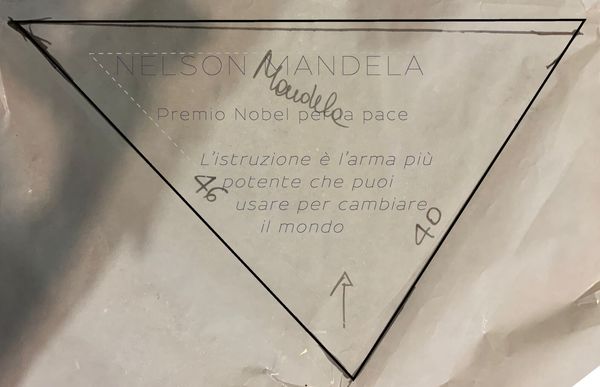 NELSON MANDELA
Mandela
Premio Nobel per la pace
L'istruzione è l'arma più
potente che puoi
usare per cambiare
il mondo
46
40